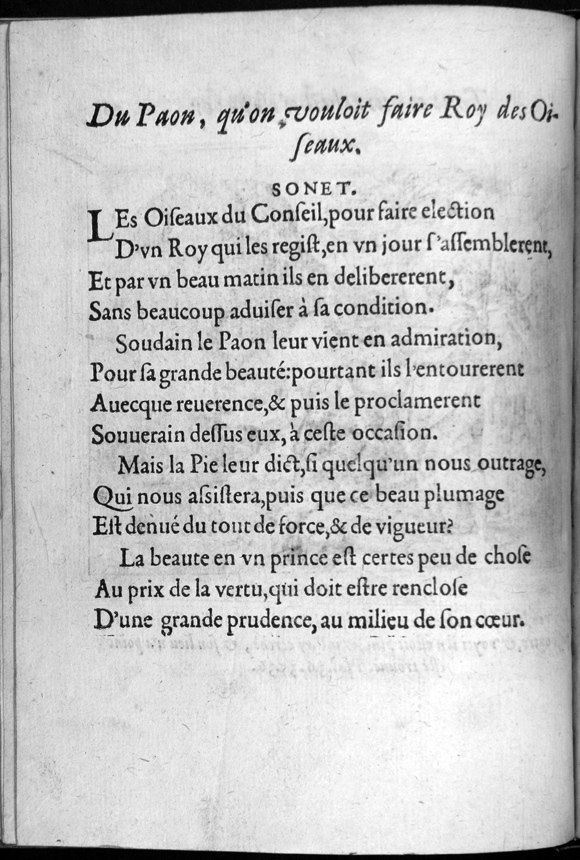 Du Paon, qu'on vouloit faire Roy des Oi-
ſeaux.
SONET.
LEs Oiſeaux du Conſeil,pour faire election
D'vn Roy qui les regiſt,en vn jour ſ'aſſemblerent,
Et par vn beau matin ils en delibererent,
Sans beaucoup aduiſer à ſa condition.
Soudain le Paon leur vient en admiration,
Pour ſa grande beauté:pourtant ils l'entourerent
Auecque reuerence,& puis le proclamerent
Souuerain deſſus eux, à ceſte occaſion.
Mais la Pie leur dict,ſi quelqu'un nous outrage,
Qui nous aſsiſtera,puis que ce beau plumage
Eſt denué du tout de force,& de vigueur?
La beaute en vn prince eſt certes peu de choſe
Au prix de la vertu,qui doit eſtre rencloſe
D'une grande prudence, au milieu de ſon cœur.